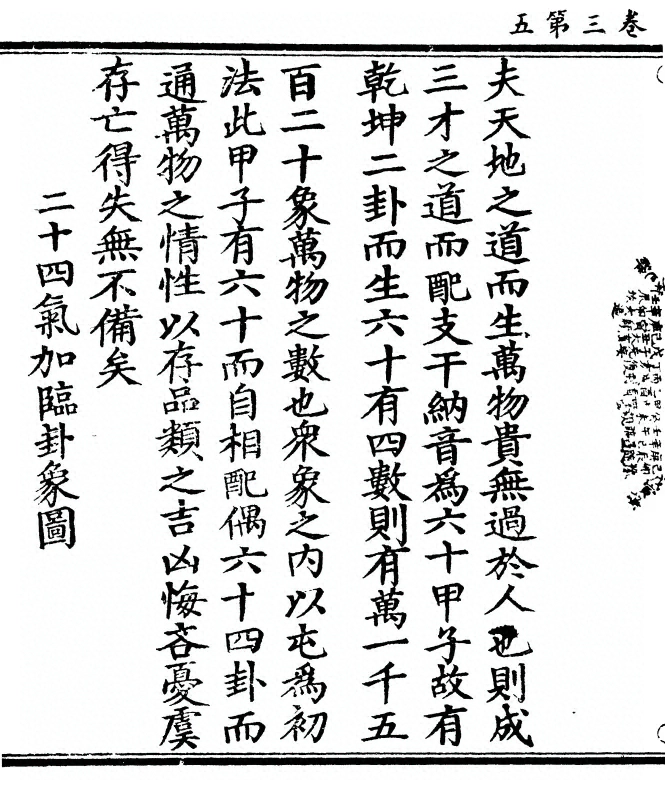 卷三第五
夫天地之道而生萬物貴無過於人也則成
三才之道而配支干納音爲六十甲子故有
乾坤二卦而生六十有四數則有萬一千五
百二十象萬物之數也衆象之內以屯爲初
法此甲子有六十而自相配偶六十四卦而
通萬物之情性以存品類之吉凶悔吝憂虞
存亡得失無不備矣
二十四氣加臨卦象圖